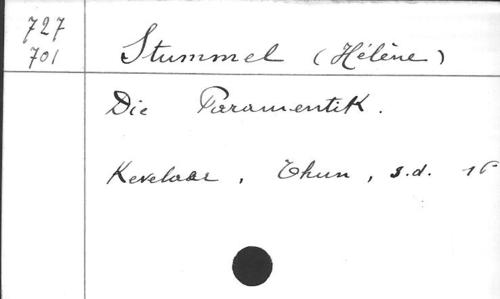 727
701
Stummel (Hélène)
Die Paramentik.
Kevelaer, Thum, s.d. 16